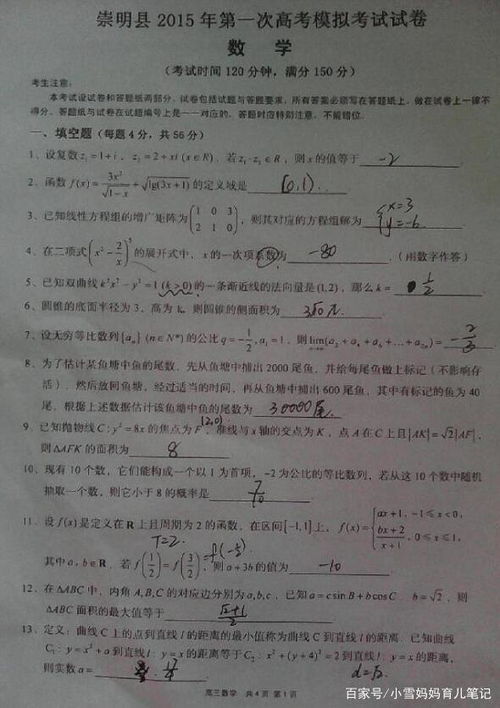 崇明县 2015 年第一次高考模拟考试试卷
数 学
（考试时间 120 分钟，满分 150 分）
考生注意：
本考试设试卷和答题纸两部分，试卷包括试题与答题要求，所有答案必须写在答题纸上，做在试卷上一律不
得分。答题纸与试卷在试题编号上是一一对应的，答题时应特别注意，不能错位。
一、填空题（每题 4 分，共 56 分）
1、设复数 z₁=1+i，z₂=2+xi (x∈R)，若 z₁·z₂∈R，则 x 的值等于 -2
2、函数 f(x)=3x²/√(1-x)+√(lg(3x+1)) 的定义域是 [0,1)
3、已知线性方程组的增广矩阵为 (1 0 3; 2 1 0)，则其对应的方程组解为 {x=3 y=-6
4、在二项式 (x²-2/x)⁵ 的展开式中，x 的一次项系数为 -80 .（用数字作答）
5、已知双曲线 k²x²-y²=1 (k>0) 的一条渐近线的法向量是 (1,2)，那么 k= 1/2
6、圆锥的底面半径为 3，高为 1，则圆锥的侧面积为 3√10π
7、设无穷等比数列{aₙ} (n∈N*) 的公比 q=-1/2，a₁=1，则 lim(a₂+a₄+a₆+…+a₂ₙ)= -2/3
8、为了估计某鱼塘中鱼的尾数，先从鱼塘中捕出 2000 尾鱼，并给每尾鱼做上标记（不影响存
活），然后放回鱼塘，经过适当的时间，再从鱼塘中捕出 600 尾鱼，其中有标记的鱼为 40
尾，根据上述数据估计该鱼塘中鱼的尾数为 30000尾
9、已知抛物线 C: y²=8x 的焦点为 F(2,0)，准线与 x 轴的交点为 K，点 A 在 C 上且 |AK|=√2|AF|，
则 △AFK 的面积为 8
10、现有 10 个数，它们能构成一个以 1 为首项，-2 为公比的等比数列，若从这 10 个数中随机
抽取一个数，则它小于 8 的概率是 7/10
11、设 f(x) 是定义在 R 上且周期为 2 的函数，在区间 [-1,1] 上，f(x)={ax+1, -1≤x<0, (bx+2)/(x+1), 0≤x≤1,
T=2. f(-1/2)
其中 a,b∈R，若 f(1/2)=f(3/2)，则 a+3b 的值为 -10
12、在 △ABC 中，内角 A,B,C 的对应边分别为 a,b,c，已知 a=csinB+bcosC，b=√2，则
△ABC 面积的最大值等于 (√2+1)/2
13、定义：曲线 C 上的点到直线 l 的距离的最小值称为曲线 C 到直线 l 的距离，已知曲线
C₁: y=x²+a 到直线 l: y=x 的距离等于 C₂: x²+(y+4)²=2 到直线 l: y=x 的距离，
则实数 a=
d=√2
高三数学 共4页 第1页
百家号/小雪妈妈育儿笔记